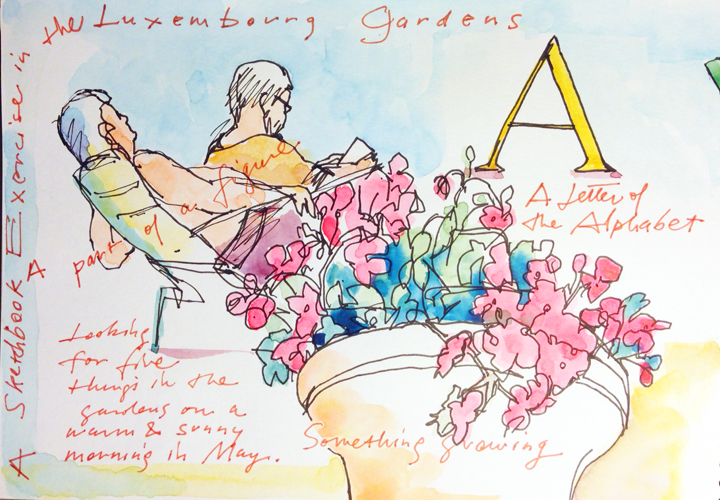 A Sketchbook Exercise in
the Luxembourg Gardens
A part of a figure
A
A Letter of
the Alphabet
Looking
for five
things in the
gardens on a
warm & sunny
morning in May.
Something growing